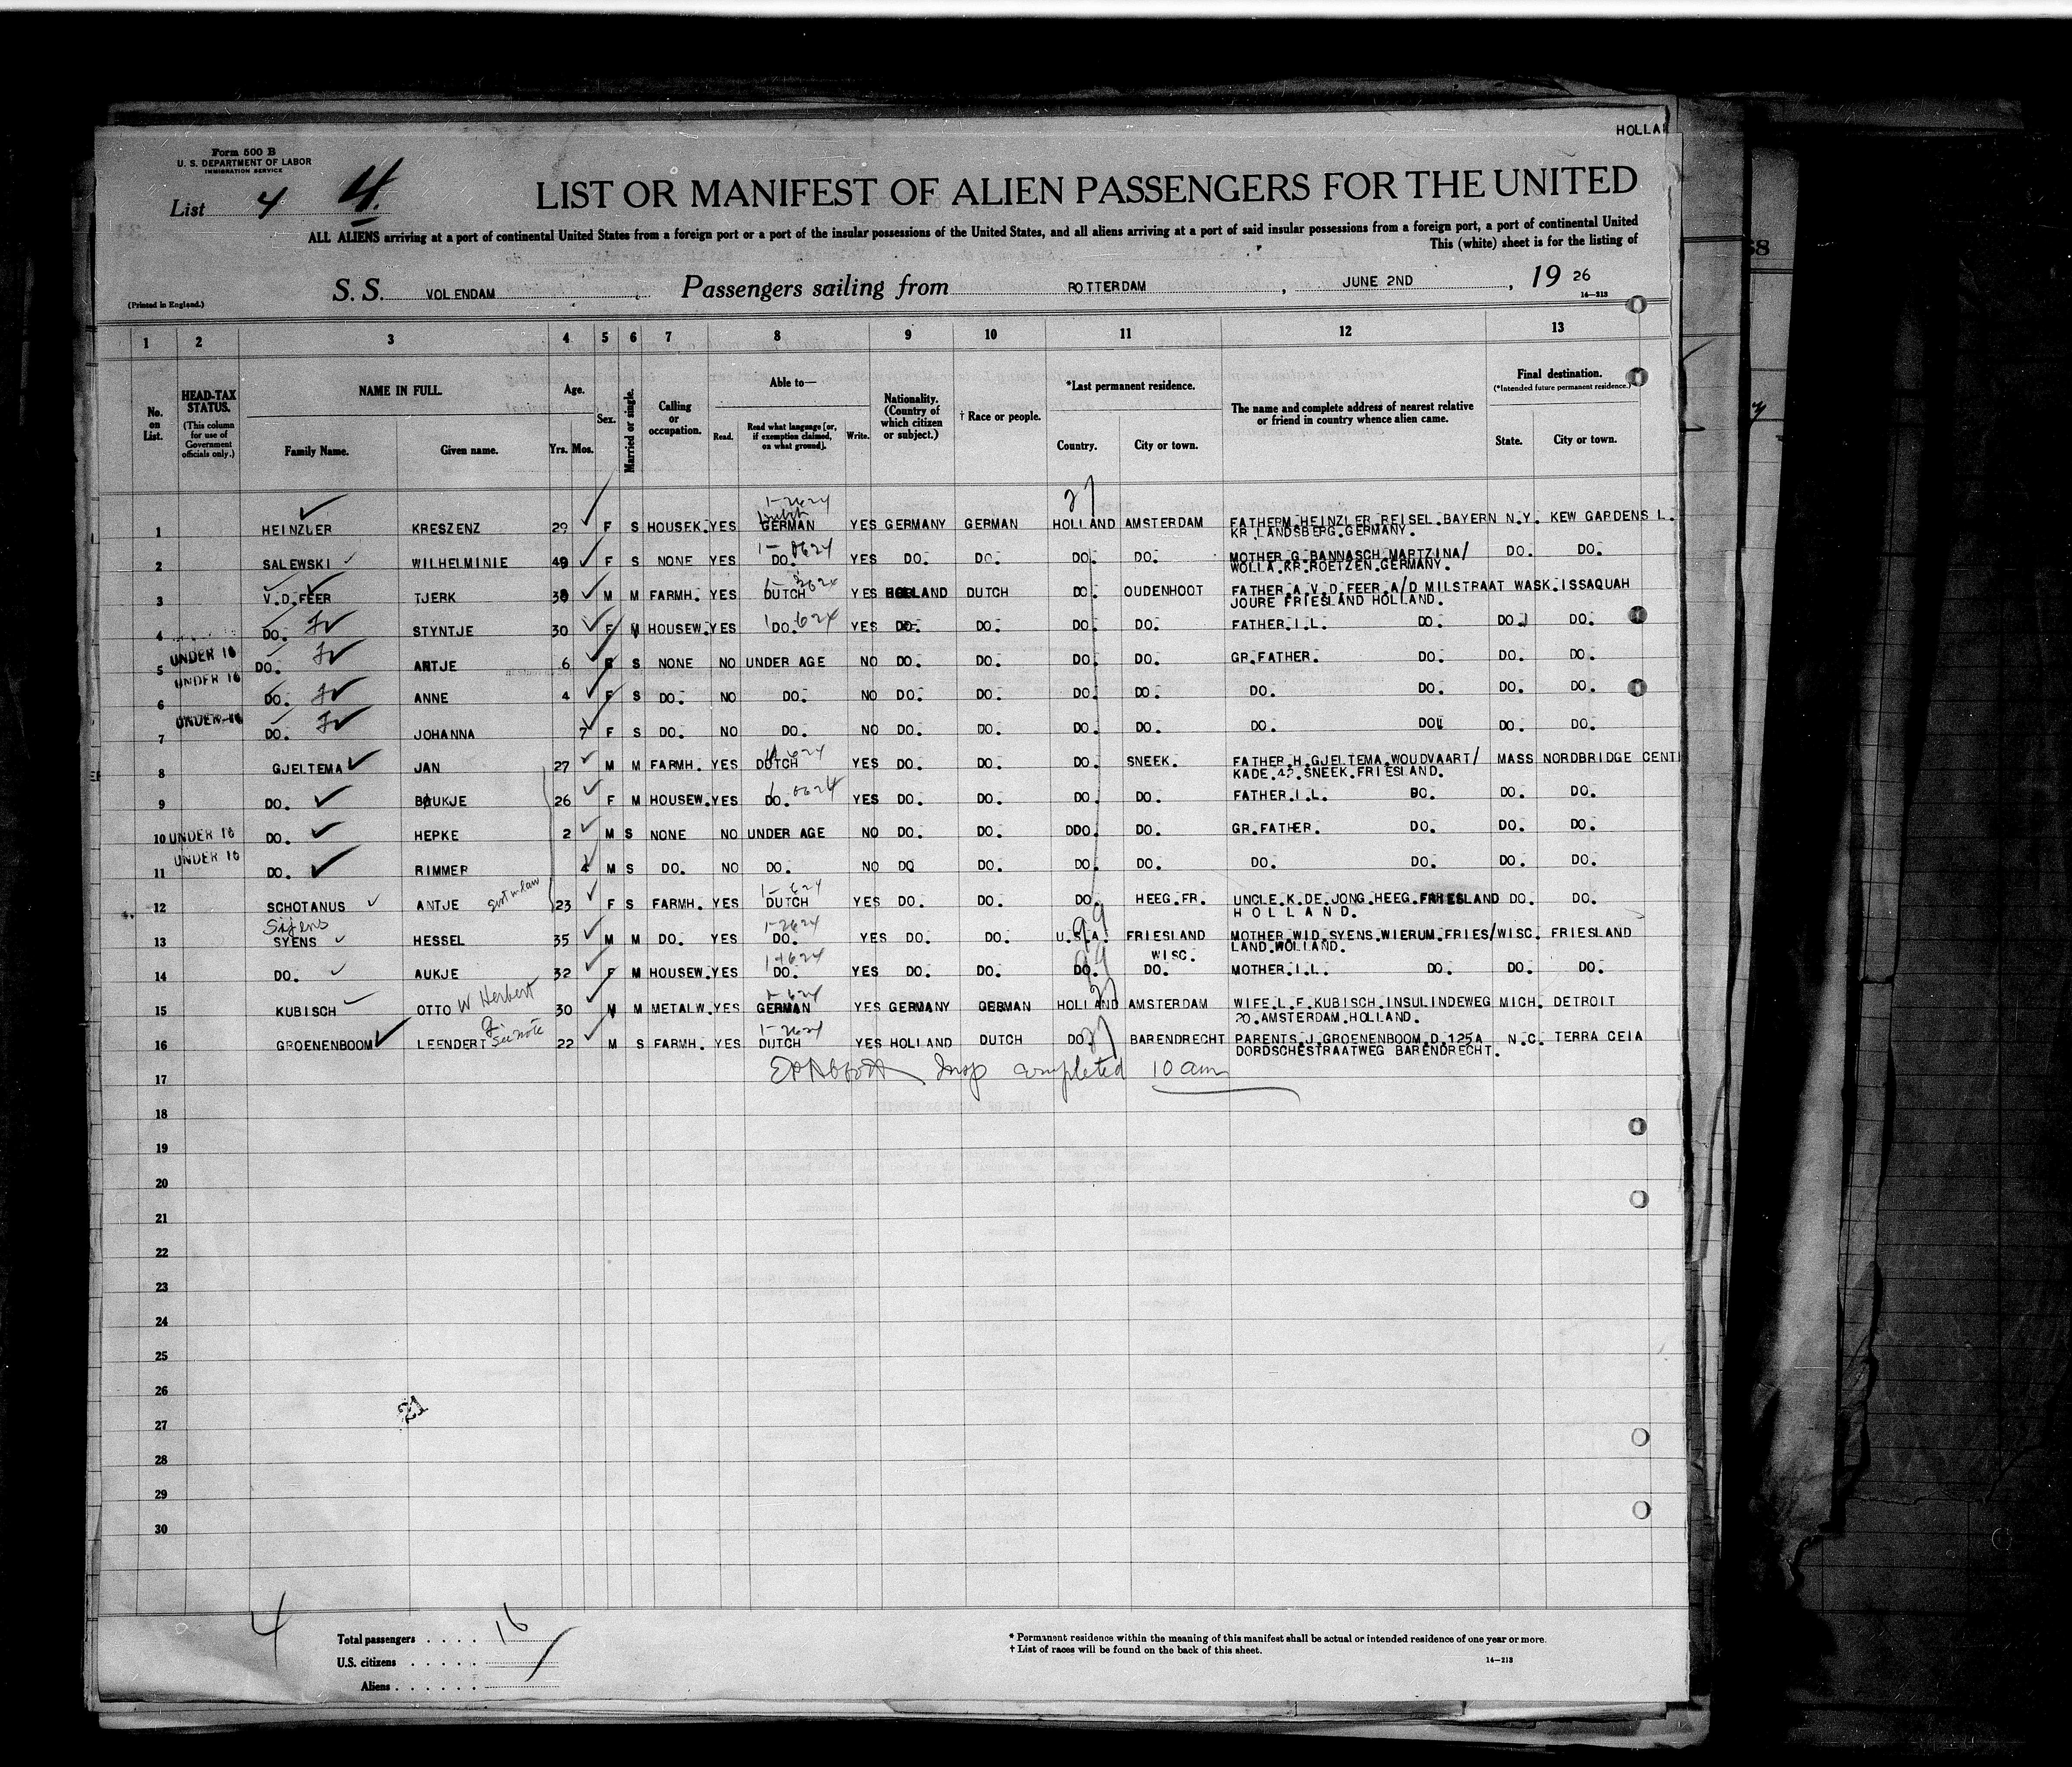 HOLLA
Form 500 B
U. S. DEPARTMENT OF LABOR
IMMIGRATION SERVICE
List 4 4.
LIST OR MANIFEST OF ALIEN PASSENGERS FOR THE UNITED
ALL ALIENS arriving at a port of continental United States from a foreign port or a port of the insular possessions of the United States, and all aliens arriving at a port of said insular possessions from a foreign port, a port of continental United
This (white) sheet is for the listing of
(Printed in England.)
S. S. VOLENDAM Passengers sailing from ROTTERDAM, JUNE 2ND, 19 26
16—213
1 2 3 4 5 6 7 8 9 10 11 12 13
No. on List.
HEAD-TAX STATUS. (This column for use of Government officials only.)
NAME IN FULL. Family Name. Given name.
Age. Yrs. Mos.
Sex.
Married or single.
Calling or occupation.
Able to— Read. Read what language [or, if exemption claimed, on what ground]. Write.
Nationality. (Country of which citizen or subject.)
† Race or people.
*Last permanent residence. Country. City or town.
The name and complete address of nearest relative or friend in country whence alien came.
Final destination. (*Intended future permanent residence.) State. City or town.
1 HEINZLER KRESZENZ 29 F S HOUSEK. YES GERMAN YES GERMANY GERMAN HOLLAND AMSTERDAM FATHER M. HEINZLER REISEL. BAYERN N.Y. KEW GARDENS L.
KR LANDSBERG. GERMANY.
2 SALEWSKI WILHELMINIE 49 F S NONE YES DO. YES DO. DO. DO. DO. MOTHER G. BANNASCH MARTZINA/ DO. DO.
WOLLA. KR. ROETZEN. GERMANY.
3 V. D. FEER TJERK 38 M M FARMH. YES DUTCH YES HOLLAND DUTCH DO. OUDENHOOT FATHER A. V. D. FEER. A/D MILSTRAAT WASK. ISSAQUAH
JOURE FRIESLAND HOLLAND.
4 DO. STYNTJE 30 F M HOUSEW. YES DO. YES DO. DO. DO. DO. FATHER. I. L. DO. DO. DO.
5 UNDER 16 DO. ANTJE 6 F S NONE NO UNDER AGE NO DO. DO. DO. DO. GR. FATHER. DO. DO. DO.
6 UNDER 16 DO. ANNE 4 F S DO. NO DO. NO DO. DO. DO. DO. DO. DO. DO. DO.
7 UNDER 16 DO. JOHANNA 7 F S DO. NO DO. NO DO. DO. DO. DO. DO. DO. DO. DO.
8 GJELTEMA JAN 27 M M FARMH. YES DUTCH YES DO. DO. DO. SNEEK. FATHER H. GJELTEMA. WOUDVAART/ MASS NORDBRIDGE CENT
KADE. 42. SNEEK. FRIESLAND.
9 DO. BAUKJE 26 F M HOUSEW. YES DO. YES DO. DO. DO. DO. FATHER. I. L. DO. DO. DO.
10 UNDER 16 DO. HEPKE 2 M S NONE NO UNDER AGE NO DO. DO. DDO. DO. GR. FATHER. DO. DO. DO.
11 UNDER 16 DO. RIMMER 4 M S DO. NO DO. NO DO DO. DO. DO. DO. DO. DO. DO.
12 SCHOTANUS ANTJE 23 F S FARMH. YES DUTCH YES DO. DO. DO. HEEG. FR. UNCLE. K. DE. JONG. HEEG. FRIESLAND DO. DO.
HOLLAND.
Sijens
13 SYENS HESSEL 35 M M DO. YES DO. YES DO. DO. U.S.A. FRIESLAND MOTHER WID. SYENS. WIERUM. FRIES/ WISC. FRIESLAND
WISC. LAND. HOLLAND.
14 DO. AUKJE 32 F M HOUSEW. YES DO. YES DO. DO. DO. DO. MOTHER. I. L. DO. DO. DO.
15 KUBISCH OTTO W Herbert 30 M M METALW. YES GERMAN YES GERMANY GERMAN HOLLAND AMSTERDAM WIFE. L. F. KUBISCH. INSULINDEWEG MICH. DETROIT
20. AMSTERDAM. HOLLAND.
16 GROENENBOOM LEENDERT See note 22 M S FARMH. YES DUTCH YES HOLLAND DUTCH DO. BARENDRECHT PARENTS. J. GROENENBOOM. D. 125A N.C. TERRA CEIA
DORDSCHESTRAATWEG BARENDRECHT.
17 Insp completed 10 am
18
19
20
21
22
23
24
25
26
21
27
28
29
30
4
Total passengers . . . . 16
U.S. citizens . . . . .
Aliens . . . . . .
* Permanent residence within the meaning of this manifest shall be actual or intended residence of one year or more.
† List of races will be found on the back of this sheet.
14—213